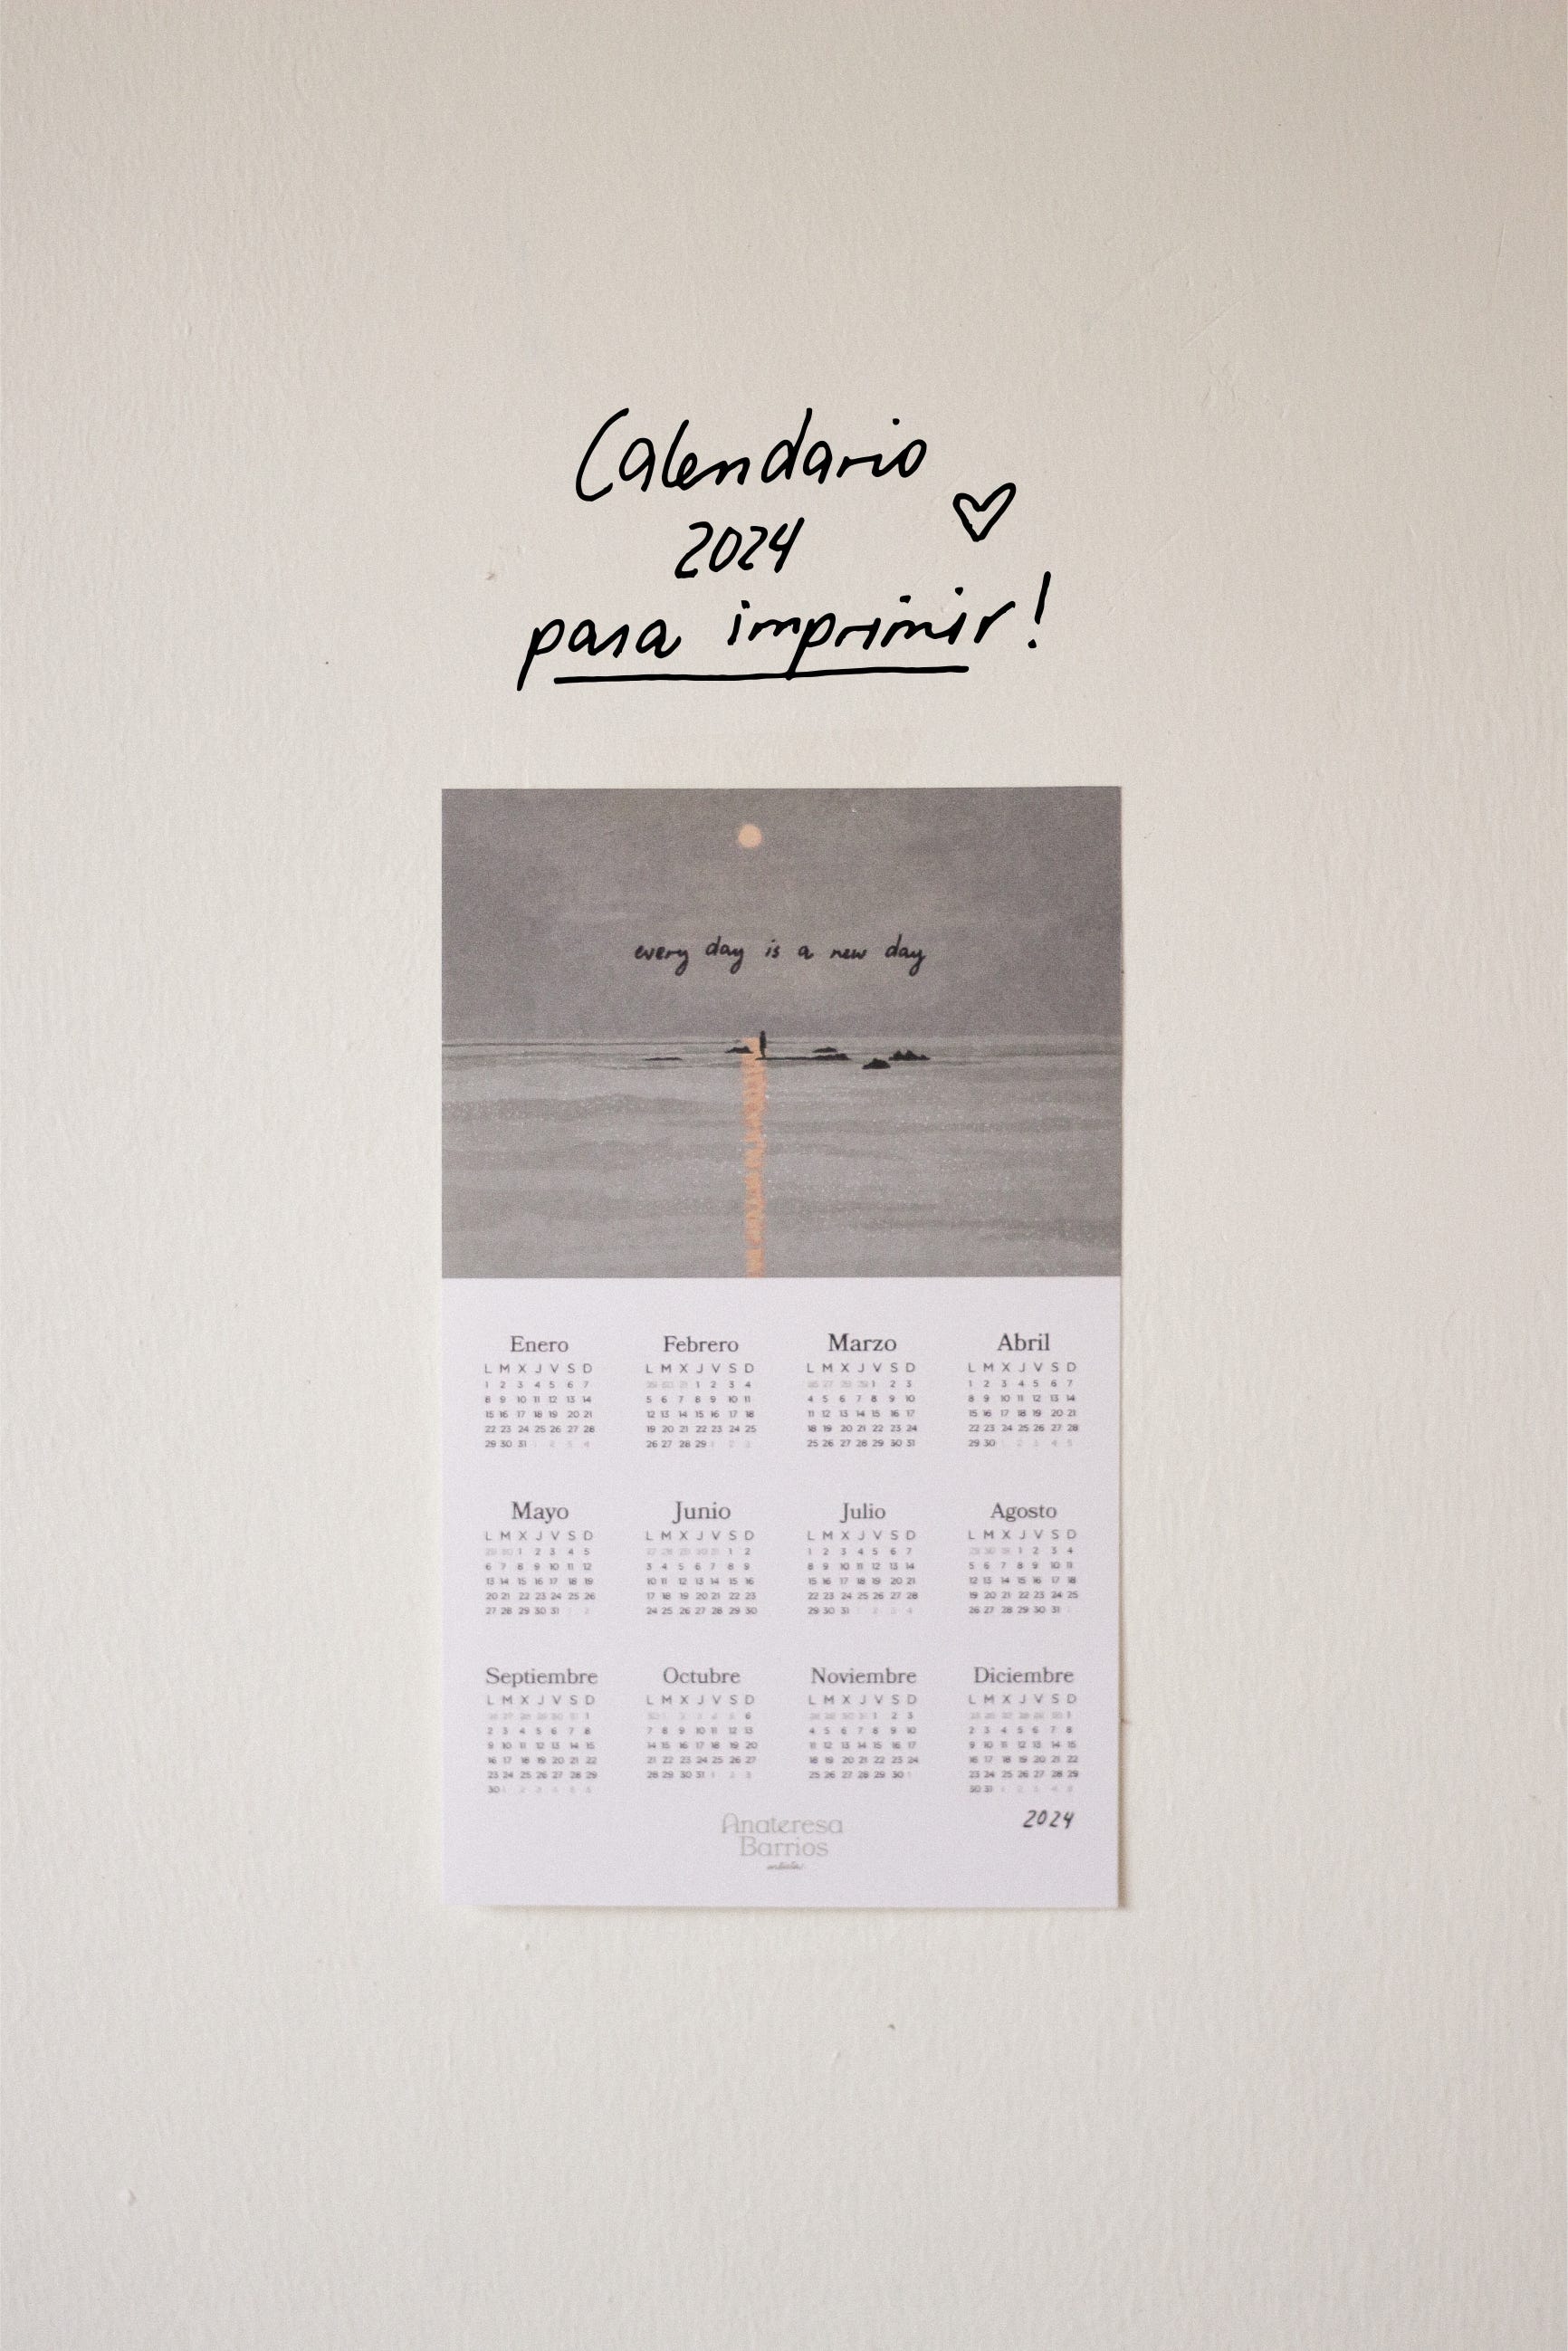 Calendario
2024
para imprimir!
every day is a new day
Enero
L M X J V S D
1 2 3 4 5 6 7
8 9 10 11 12 13 14
15 16 17 18 19 20 21
22 23 24 25 26 27 28
29 30 31
Febrero
L M X J V S D
1 2 3 4
5 6 7 8 9 10 11
12 13 14 15 16 17 18
19 20 21 22 23 24 25
26 27 28 29
Marzo
L M X J V S D
1 2 3
4 5 6 7 8 9 10
11 12 13 14 15 16 17
18 19 20 21 22 23 24
25 26 27 28 29 30 31
Abril
L M X J V S D
1 2 3 4 5 6 7
8 9 10 11 12 13 14
15 16 17 18 19 20 21
22 23 24 25 26 27 28
29 30
Mayo
L M X J V S D
1 2 3 4 5
6 7 8 9 10 11 12
13 14 15 16 17 18 19
20 21 22 23 24 25 26
27 28 29 30 31
Junio
L M X J V S D
1 2
3 4 5 6 7 8 9
10 11 12 13 14 15 16
17 18 19 20 21 22 23
24 25 26 27 28 29 30
Julio
L M X J V S D
1 2 3 4 5 6 7
8 9 10 11 12 13 14
15 16 17 18 19 20 21
22 23 24 25 26 27 28
29 30 31
Agosto
L M X J V S D
1 2 3 4
5 6 7 8 9 10 11
12 13 14 15 16 17 18
19 20 21 22 23 24 25
26 27 28 29 30 31
Septiembre
L M X J V S D
1
2 3 4 5 6 7 8
9 10 11 12 13 14 15
16 17 18 19 20 21 22
23 24 25 26 27 28 29
30
Octubre
L M X J V S D
6
7 8 9 10 11 12 13
14 15 16 17 18 19 20
21 22 23 24 25 26 27
28 29 30 31
Noviembre
L M X J V S D
1 2 3
4 5 6 7 8 9 10
11 12 13 14 15 16 17
18 19 20 21 22 23 24
25 26 27 28 29 30
Diciembre
L M X J V S D
1
2 3 4 5 6 7 8
9 10 11 12 13 14 15
16 17 18 19 20 21 22
23 24 25 26 27 28 29
30 31
2024
Anateresa
Barrios